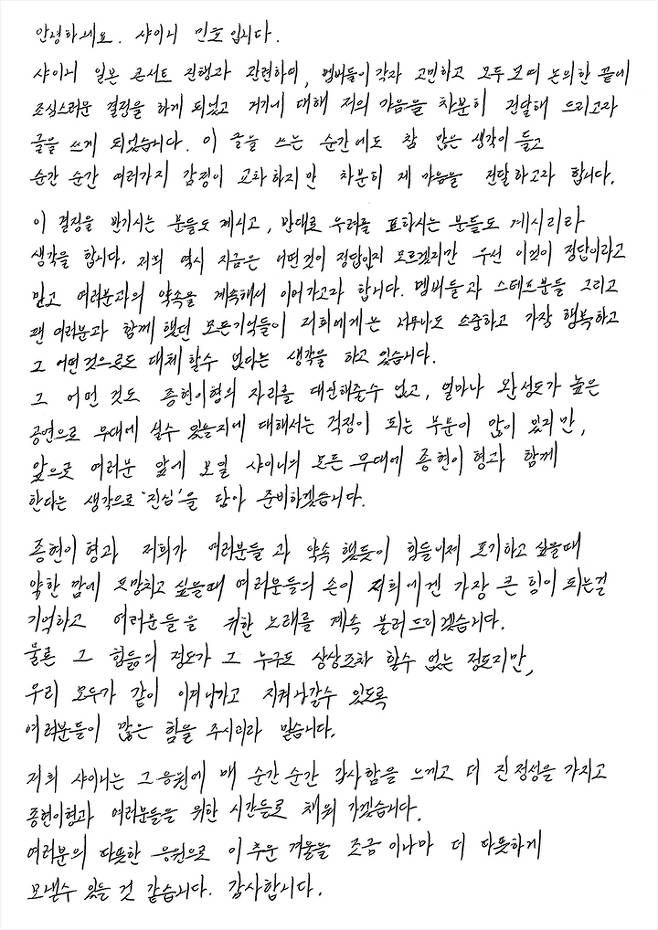 안녕하세요. 샤이니 민호입니다.
샤이니 일본 콘서트 진행과 관련하여, 멤버들이 각자 고민하고 모두 모여 논의한 끝에
조심스러운 결정을 하게 되었고 거기에 대해 저의 마음을 차분히 전달해 드리고자
글을 쓰게 되었습니다. 이 글을 쓰는 순간에도 참 많은 생각이 들고
순간 순간 여러가지 감정이 교차하지만 차분히 제 마음을 전달하고자 합니다.
이 결정을 반기시는 분들도 계시고, 반대로 우려를 표하시는 분들도 계시리라
생각을 합니다. 저희 역시 지금은 어떤것이 정답인지 모르겠지만 우선 이것이 정답이라고
믿고 여러분과의 약속을 계속해서 이어가고자 합니다. 멤버들과 스태프분들 그리고
팬 여러분과 함께 했던 모든기억들이 저희에게는 너무나도 소중하고 가장 행복하고
그 어떤것으로도 대체할수 없다는 생각을 하고 있습니다.
그 어떤 것도 종현이형의 자리를 대신해줄수 없고, 얼마나 완성도가 높은
공연으로 무대에 설수 있을지에 대해서는 걱정이 되는 부분이 많이 있지만,
앞으로 여러분 앞에 보일 샤이니의 모든 무대에 종현이형과 함께
한다는 생각으로 '진심'을 담아 준비하겠습니다.
종현이형과 저희가 여러분들과 약속 했듯이 힘들어서 포기하고 싶을때
약한 맘에 도망치고 싶을때 여러분들의 손이 저희에겐 가장 큰 힘이 되는걸
기억하고 여러분들을 위한 노래를 계속 불러드리겠습니다.
물론 그 힘듦의 정도가 그 누구도 상상조차 할수 없는 정도지만,
우리 모두가 같이 이겨나가고 지켜나갈수 있도록
여러분들이 많은 힘을 주시리라 믿습니다.
저희 샤이니는 그 응원에 매 순간순간 감사함을 느끼고 더 진정성을 가지고
종현이형과 여러분들을 위한 시간들로 채워 가겠습니다.
여러분의 따뜻한 응원으로 이 추운 겨울을 조금 이나마 더 따뜻하게
보낼수 있을 것 같습니다. 감사합니다.